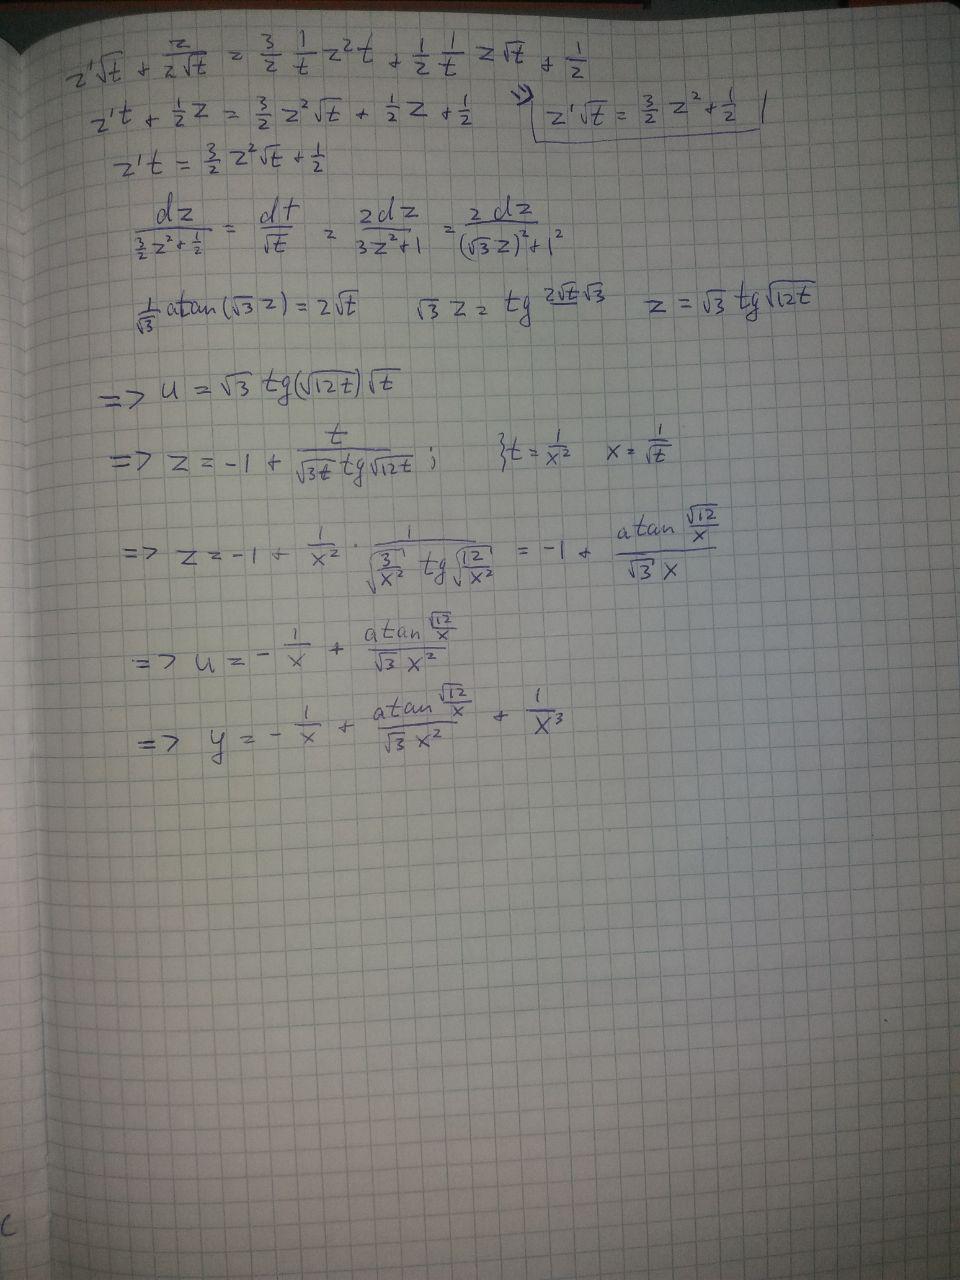 z'√t + z/2√t = 3/2 1/t z²t + 1/2 1/t z√t + 1/2
z't + 1/2 z = 3/2 z²√t + 1/2 z + 1/2 => z'√t = 3/2 z² + 1/2
z't = 3/2 z²√t + 1/2
dz/(3/2 z² + 1/2) = dt/√t = 2dz/(3z²+1) = 2dz/((√3z)²+1²)
1/√3 atan(√3 z) = 2√t √3 z = tg 2√t√3 z = √3 tg√12t
=> u = √3 tg(√12t)√t
=> z = -1 + t/(√3t tg√12t) ; }t = 1/x² x = 1/√t
=> z = -1 + 1/x² · 1/(√(3/x²) tg√(12/x²)) = -1 + atan(√12/x)/(√3 x)
=> u = - 1/x + atan(√12/x)/(√3 x²)
=> y = - 1/x + atan(√12/x)/(√3 x²) + 1/x³